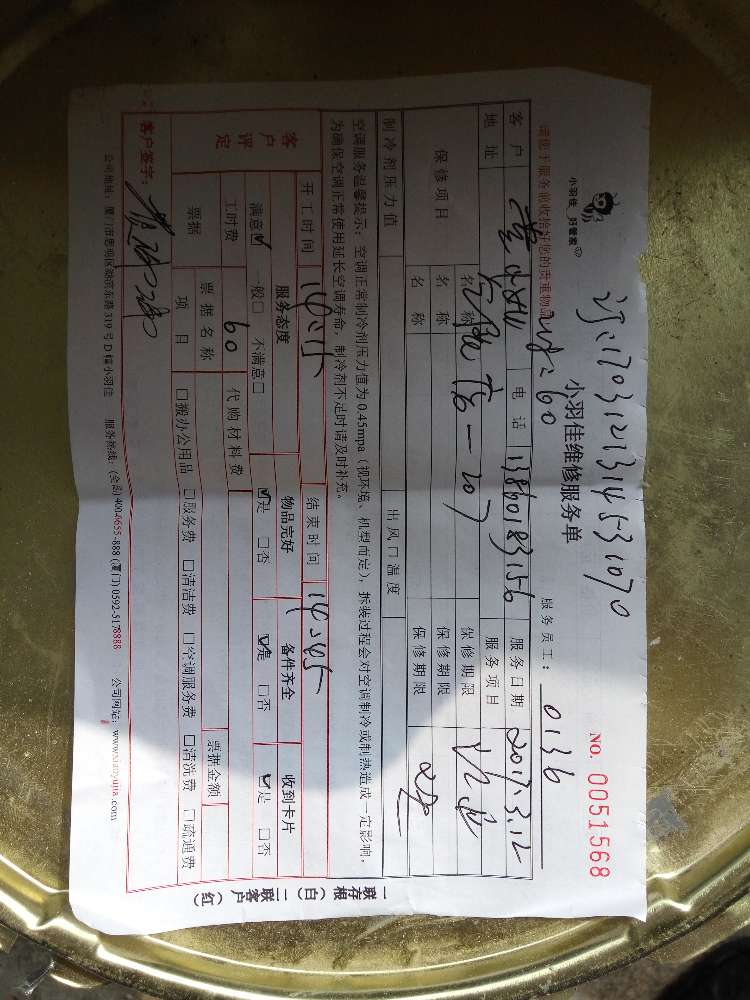 订:1703121314531070
小羽佳 好管家
小羽佳维修服务单
NO. 0051568
请您于服务前收拾好您的贵重物品
服务员工: 0136
客户 电话 13860183156 服务日期 2017.3.12
地址 一207 服务项目
保修项目 名称 保修期限
名称 保修期限
名称 保修期限
制冷剂压力值 出风口温度
空调服务温馨提示:空调正常制冷剂压力值为0.45mpa(视环境、机型而定),拆装过程会对空调制冷或制热造成一定影响,
为确保空调正常使用延长空调寿命,制冷剂不足时请及时补充。
开工时间 14:15 结束时间 14:45
客户评定 服务态度 物品完好 备件齐全 收到卡片
满意☑ 一般□ 不满意□ ☑是 □否 ☑是 □否 ☑是 □否
工时费 60 代购材料费
票据 票据名称 票据金额
项目 □搬办公用品 □服务费 □清洁费 □空调服务费 □清洗费 □疏通费
客户签字:
公司地址:厦门市思明区湖滨东路319号D幢小羽佳 服务热线:(全国)400-6655-888 (厦门)0592-5178888 公司网站:www.xiaoyujia.com
一联存根(白)二联客户(红)